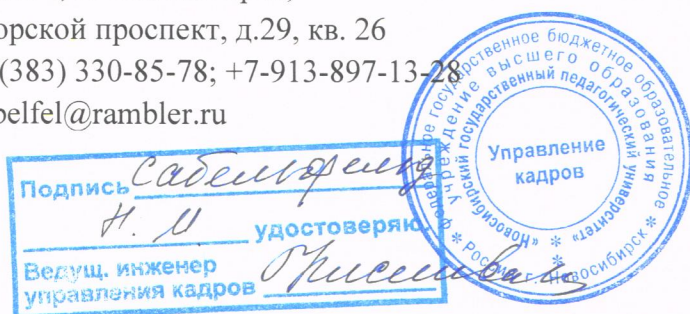 орской проспект, д.29, кв. 26
(383) 330-85-78; +7-913-897-13-28
belfel@rambler.ru
Подпись Сабельфельд
Н. М удостоверяю,
Ведущ. инженер
управления кадров
Федеральное государственное бюджетное образовательное
учреждение высшего образования
«Новосибирский государственный педагогический университет»
Россия г. Новосибирск
Управление
кадров